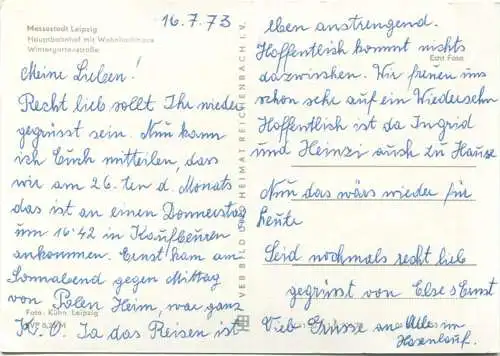 16.7.73
Messestadt Leipzig
Hauptbahnhof mit Wohnhochhaus
Wintergartenstraße
Meine Lieben!
Recht lieb sollt Ihr wieder
gegrüsst sein. Nun kann
ich Euch mitteilen, dass
wir am 26.ten d. Monats
das ist an einen Donnerstag
um 16:42 in Kaufbeuren
ankommen. Ernst kam am
Sonnabend gegen Mittag
von Polen Heim, war ganz
K.O. Ja das Reisen ist
Foto: Kühn, Leipzig
VEB BILD UND HEIMAT REICHENBACH I. V.
eben anstrengend.
Hoffentlich kommt nichts
Echt Foto
dazwischen. Wir freuen uns
schon sehr auf ein Wiedersehn
Hoffentlich ist da Ingrid
und Heinzi auch zu Hause
Nun das wärs wieder für
heute
Seid nochmals recht lieb
gegrüsst von Else & Ernst
Viele Grüsse an Alle im
Hasenlauf.